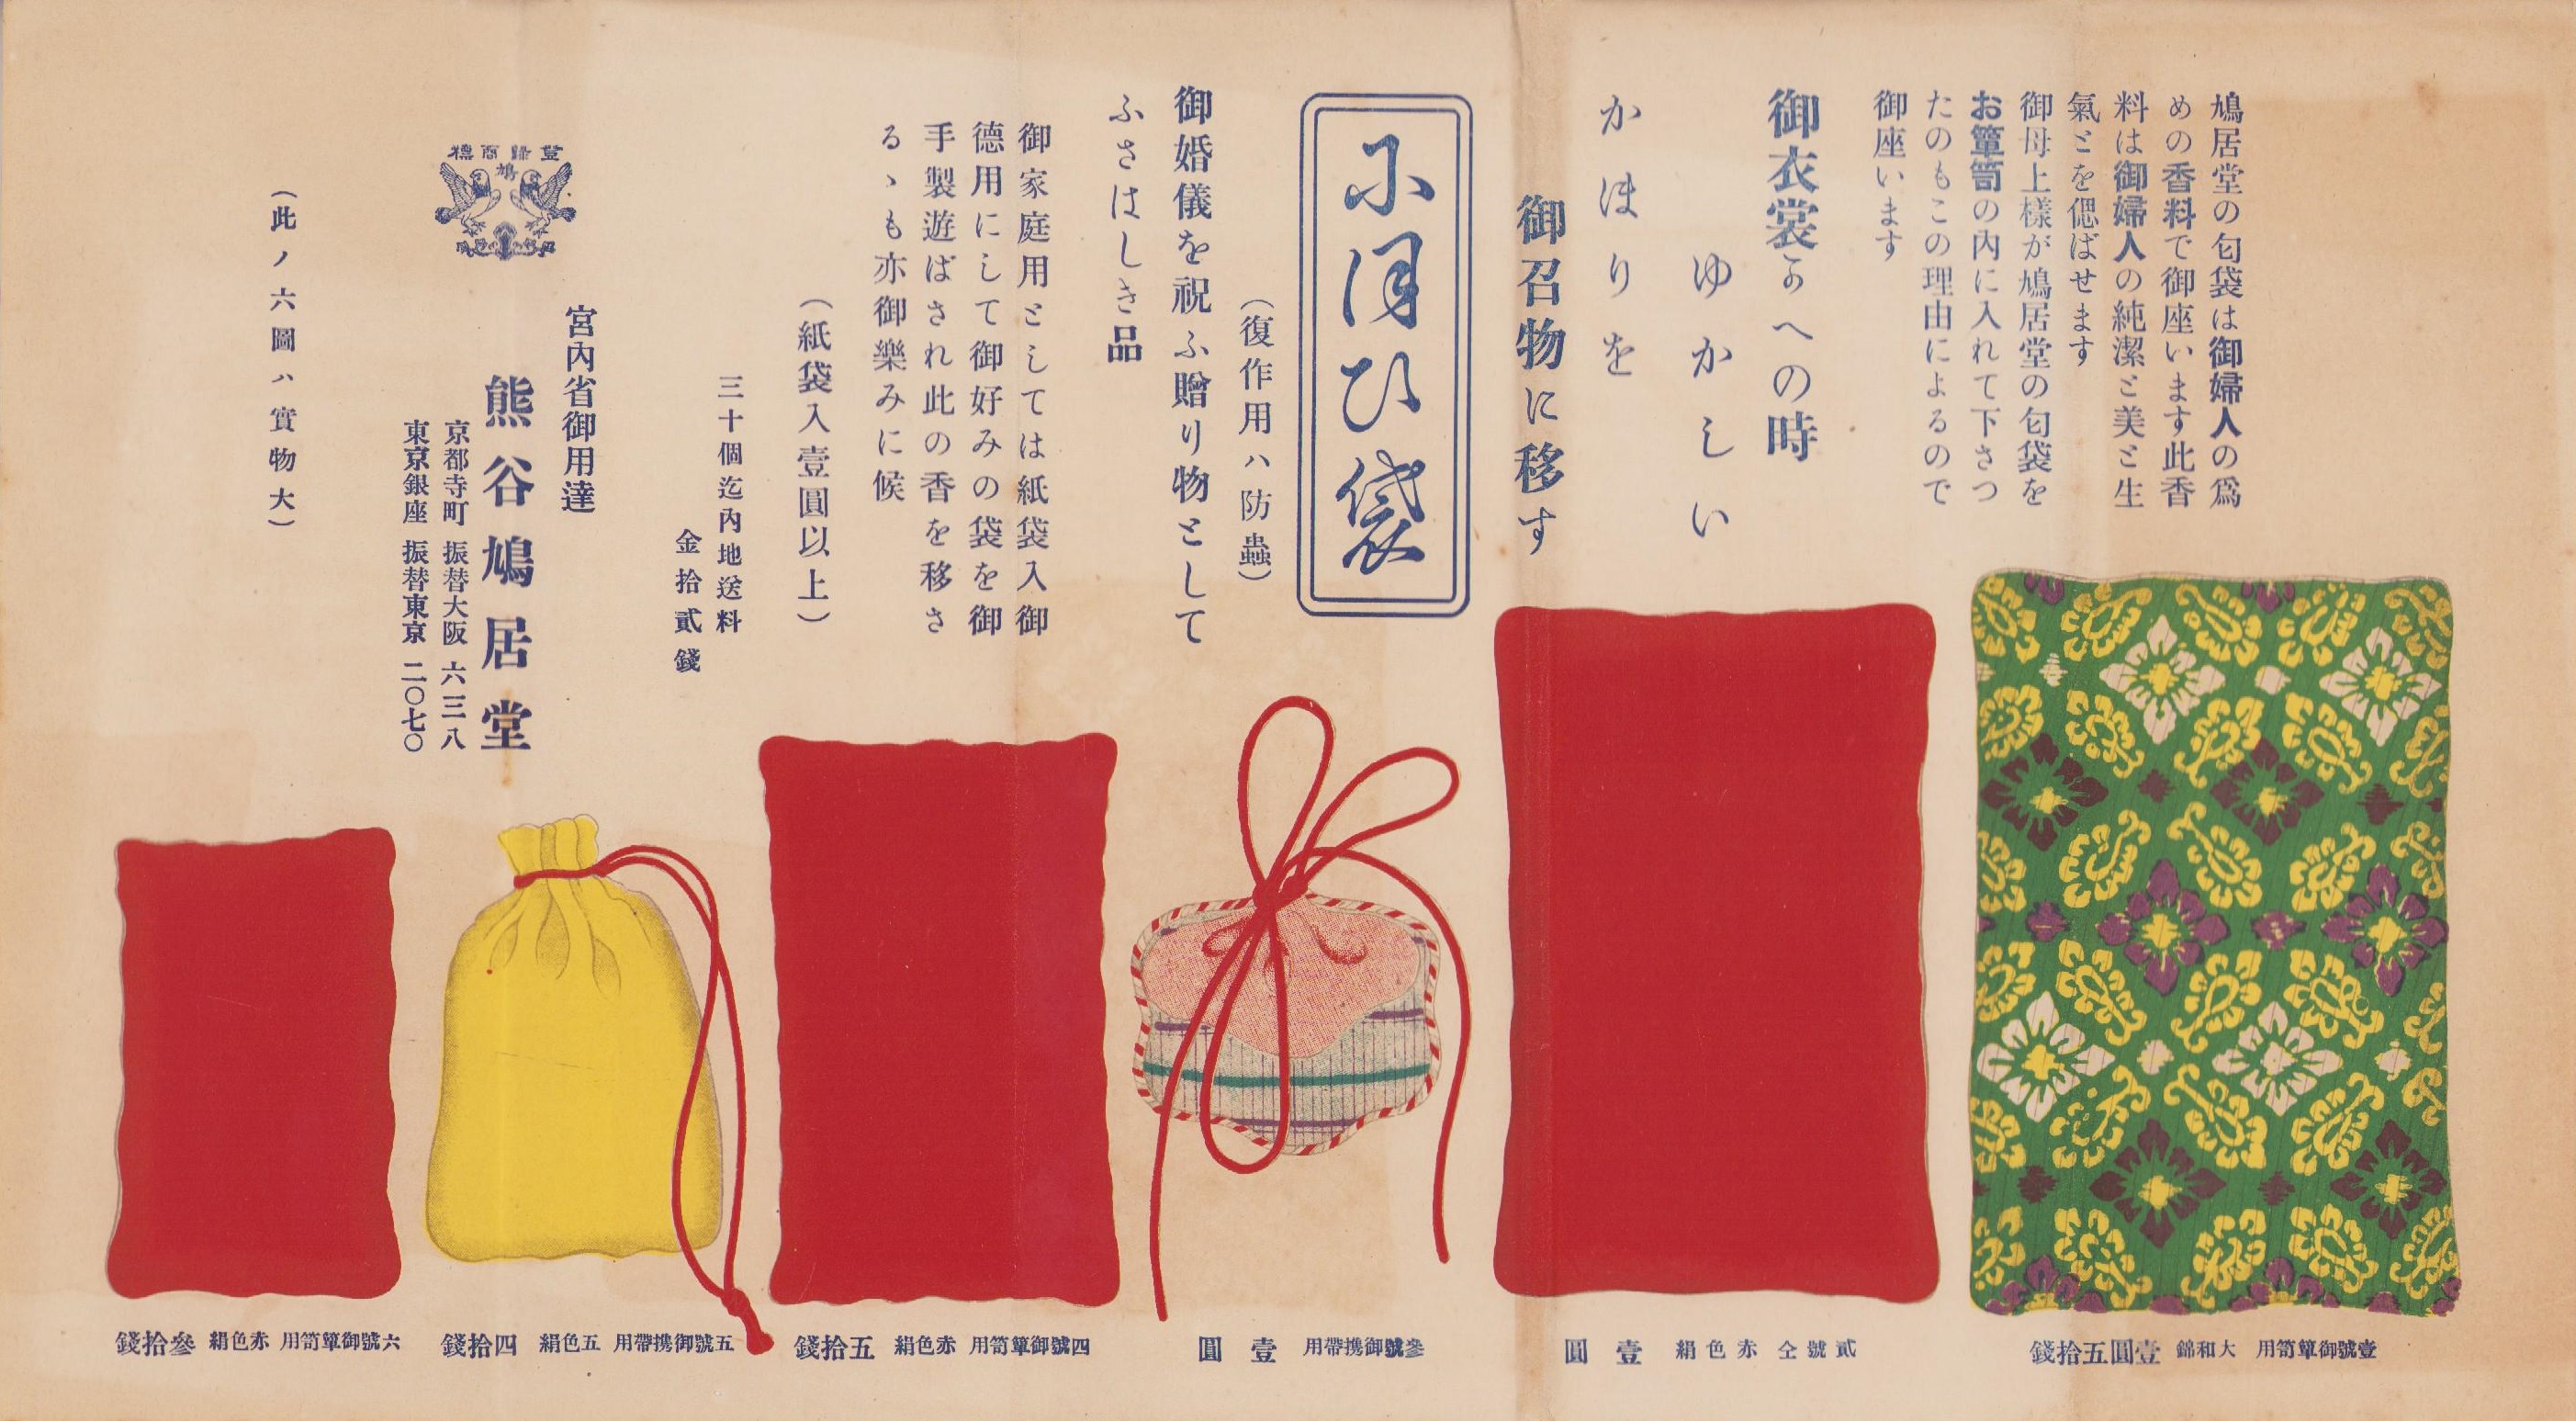 鳩居堂の匂袋は御婦人の爲
めの香料で御座います此香
料は御婦人の純潔と美と生
氣とを偲ばせます
御母上樣が鳩居堂の匂袋を
お簞笥の內に入れて下さつ
たのもこの理由によるので
御座います
御衣裳うへの時
ゆかしい
かほりを
御召物に移す
にほひ袋
(復作用ハ防蟲)
御婚儀を祝ふ贈り物として
ふさはしき品
御家庭用としては紙袋入御
德用にして御好みの袋を御
手製遊ばされ此の香を移さ
るゝも亦御樂みに候
(紙袋入壹圓以上)
三十個迄內地送料
金拾貳錢
登錄商標
鳩
宮內省御用達
熊谷鳩居堂
京都寺町 振替大阪 六三八
東京銀座 振替東京 二〇七〇
(此ノ六圖ハ實物大)
壹號御簞笥用 大和錦 壹圓五拾錢
貳號仝 赤色絹 壹圓
參號御携帶用 壹圓
四號御簞笥用 赤色絹 五拾錢
五號御携帶用 五色絹 四拾錢
六號御簞笥用 赤色絹 參拾錢